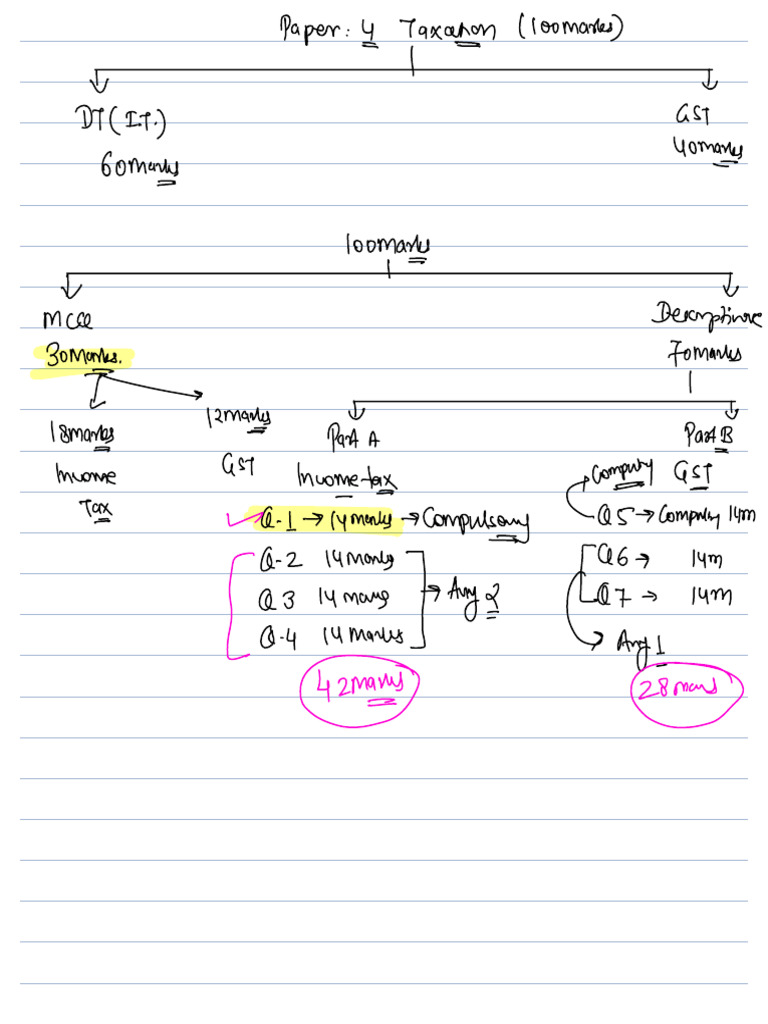 Paper: 4 Taxation (100marks)
DT (I.T.)
GST
60marks
40marks
100marks
MCQ
Descriptive
30marks.
70marks
18marks
12marks
Part A
Part B
Income
GST
Income-tax
Compulsory GST
Tax
Q-1 → 14 marks → Compulsory
Q5 → Compulsory 14m
Q-2 14 marks
Q6 → 14m
Q3 14 marks → Any 2
Q7 → 14m
Q-4 14 Marks
Any 1
42Marks
28 marks